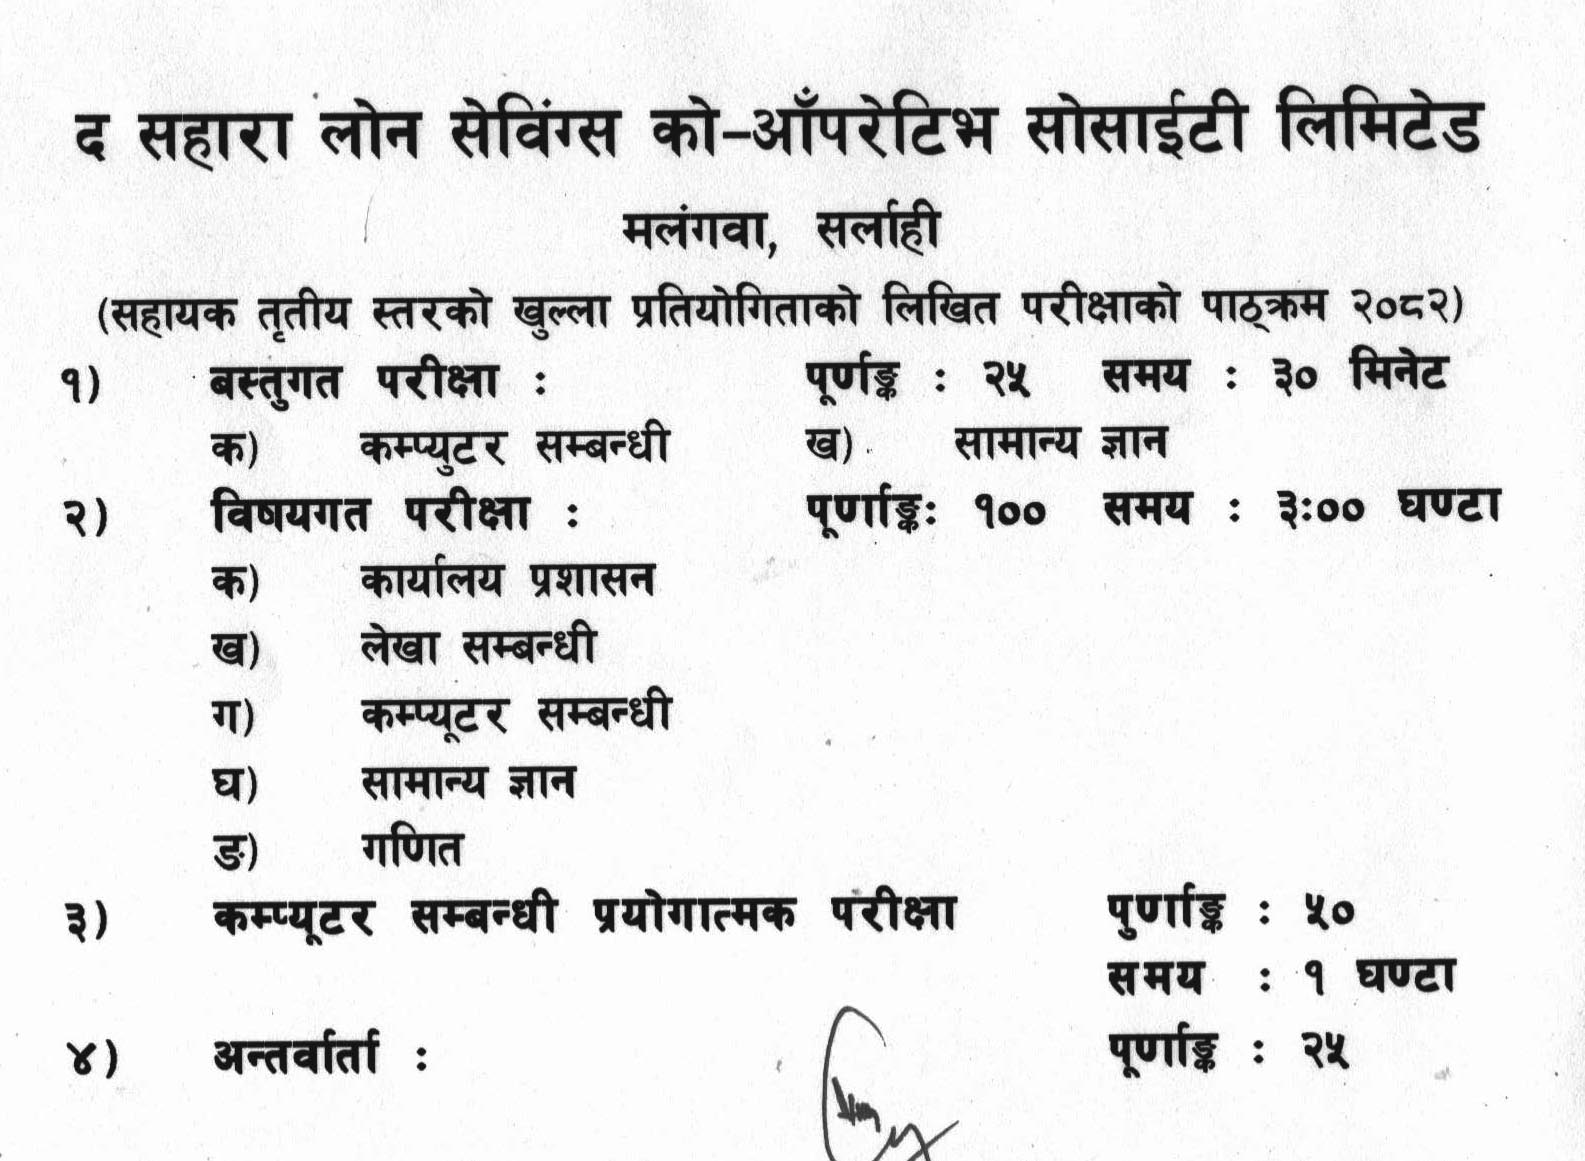 द सहारा लोन सेविंग्स को-आँपरेटिभ सोसाईटी लिमिटेड
मलंगवा, सर्लाही
(सहायक तृतीय स्तरको खुल्ला प्रतियोगिताको लिखित परीक्षाको पाठ्क्रम २०८२)
१) बस्तुगत परीक्षा : पूर्णाङ्क : २५ समय : ३० मिनेट
क) कम्प्युटर सम्बन्धी ख) सामान्य ज्ञान
२) विषयगत परीक्षा : पूर्णाङ्कः १०० समय : ३ः०० घण्टा
क) कार्यालय प्रशासन
ख) लेखा सम्बन्धी
ग) कम्प्यूटर सम्बन्धी
घ) सामान्य ज्ञान
ङ) गणित
३) कम्प्यूटर सम्बन्धी प्रयोगात्मक परीक्षा पुर्णाङ्क : ५०
समय : १ घण्टा
४) अन्तर्वार्ता : पूर्णाङ्क : २५